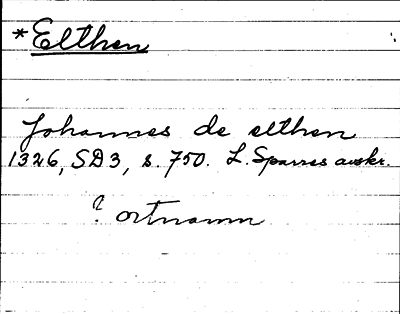 *Elthen
Johannes de elthen
1326, SD3, s. 750. L. Sparres avskr.
? ortnamn